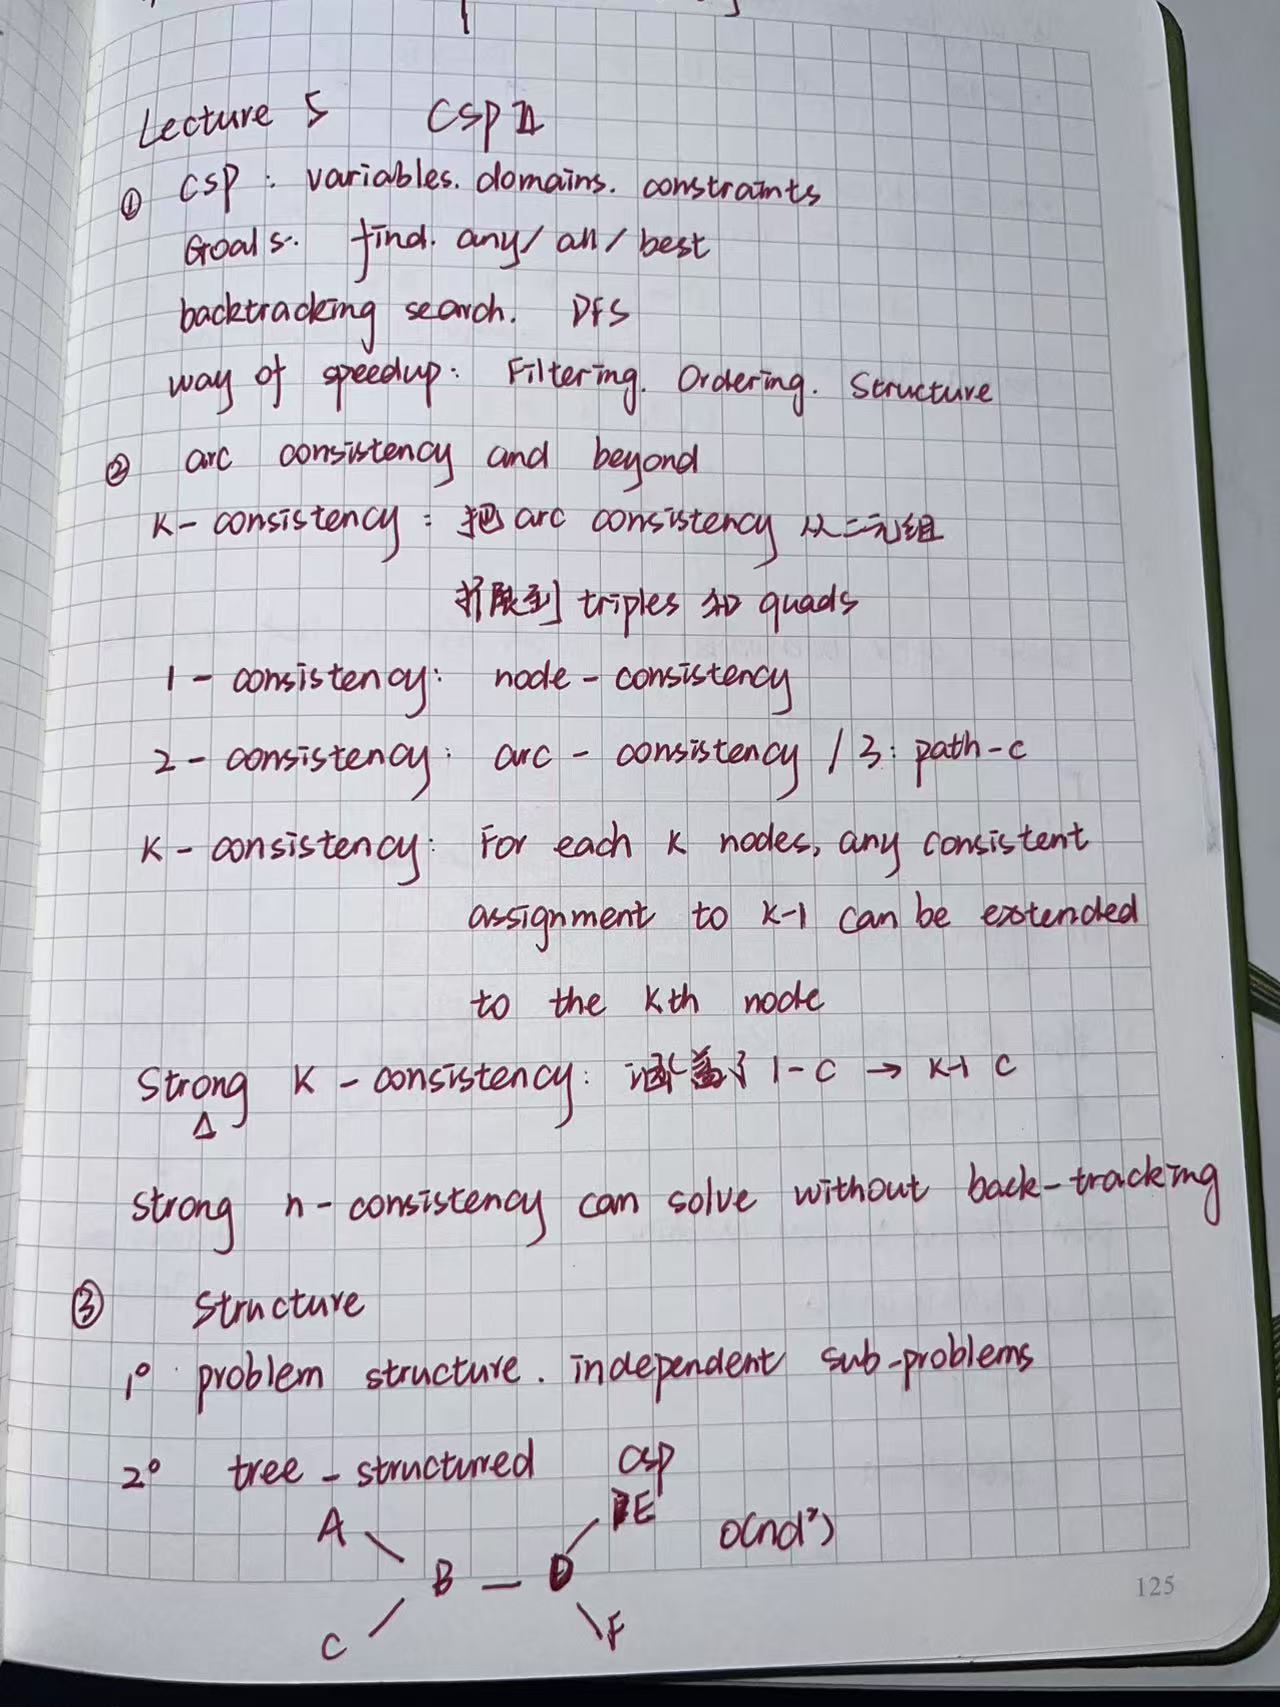 Lecture 5 CSP II
① CSP : variables. domains. constraints
Goals: find. any/ all / best
backtracking search. DFS
way of speedup: Filtering. Ordering. Structure
② arc consistency and beyond
K- consistency : 把 arc consistency 从二元组
扩展到 triples 和 quads
1 - consistency: node - consistency
2 - consistency: arc - consistency / 3: path-c
K - consistency: For each K nodes, any consistent
assignment to K-1 can be extended
to the Kth node
Strong K - consistency: 涵盖了 1-C → K-1 C
Δ
Strong n - consistency can solve without back-tracking
③ Structure
1° problem structure. independent sub-problems
2° tree - structured CSP
A E
O(nd²)
B — D
C F
125